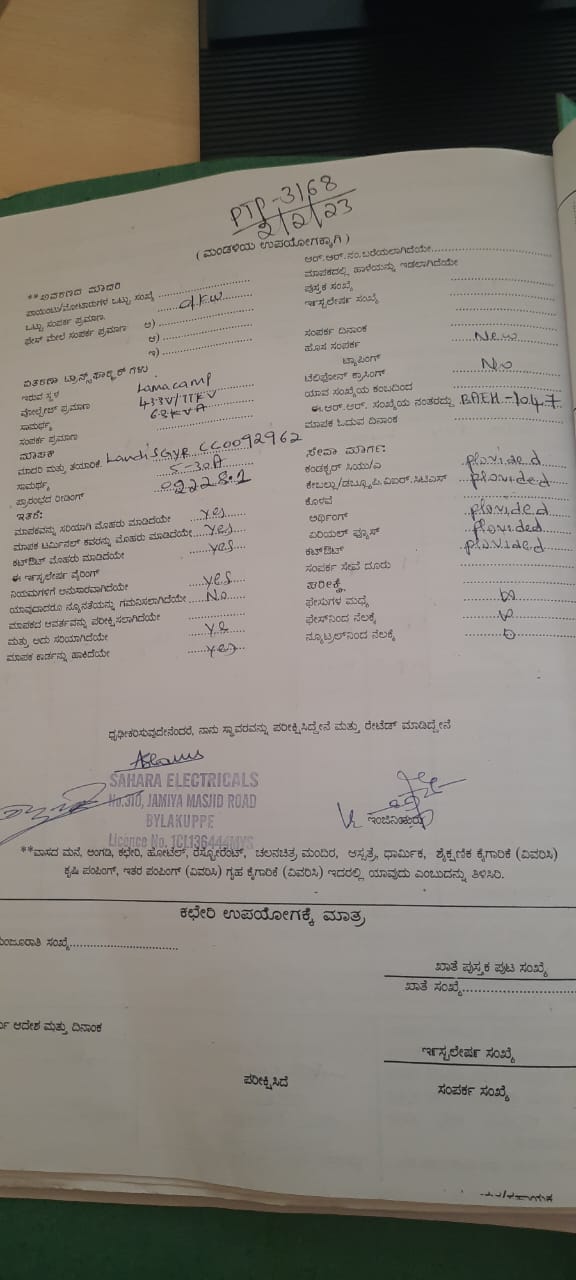 PTP-3168
2/2/23
(ಮಂಡಳಿಯ ಉಪಯೋಗಕ್ಕಾಗಿ)
**ಆವರಣದ ಮಾದರಿ
ಪಾಯಿಂಟು/ಮೋಟಾರುಗಳ ಒಟ್ಟು ಸಂಖ್ಯೆ
ಒಟ್ಟು ಸಂಪರ್ಕ ಪ್ರಮಾಣ
ಫೇಸ್ ಮೇಲೆ ಸಂಪರ್ಕ ಪ್ರಮಾಣ ಅ)
ಆ)
ಇ)
ವಿತರಣಾ ಟ್ರಾನ್ಸ್‌ಫಾರ್ಮರ್ ಗಳು
ಇರುವ ಸ್ಥಳ Lamacamp
ವೋಲ್ಟೇಜ್ ಪ್ರಮಾಣ 433V/11KV
ಸಾಮರ್ಥ್ಯ KVA
ಸಂಪರ್ಕ ಪ್ರಮಾಣ
ಮಾಪಕ
ಮಾದರಿ ಮತ್ತು ತಯಾರಿಕೆ Landisgyr CC0092962
ಸಾಮರ್ಥ್ಯ 5-30A
ಪ್ರಾರಂಭದ ರೀಡಿಂಗ್ 02228.1
ಇತರೆ:
ಮಾಪಕವನ್ನು ಸರಿಯಾಗಿ ಮೊಹರು ಮಾಡಿದೆಯೇ yes
ಮಾಪಕ ಟರ್ಮಿನಲ್ ಕವರನ್ನು ಮೊಹರು ಮಾಡಿದೆಯೇ yes
ಕಟ್‌ಔಟ್ ಮೊಹರು ಮಾಡಿದೆಯೇ yes
ಈ ಇನ್ಸ್ಟಲೇಷನ್ ವೈರಿಂಗ್
ನಿಯಮಗಳಿಗೆ ಅನುಸಾರವಾಗಿದೆಯೇ yes
ಯಾವುದಾದರೂ ನ್ಯೂನತೆಯನ್ನು ಗಮನಿಸಲಾಗಿದೆಯೇ No
ಮಾಪಕದ ಆವರ್ತವನ್ನು ಪರೀಕ್ಷಿಸಲಾಗಿದೆಯೇ
ಮತ್ತು ಅದು ಸರಿಯಾಗಿದೆಯೇ
ಮಾಪಕ ಕಾರ್ಡನ್ನು ಹಾಕಿದೆಯೇ yes
ಆರ್.ಆರ್.ನಂ.ಬರೆಯಲಾಗಿದೆಯೇ
ಮಾಪಕದಲ್ಲಿ ಹಾಳೆಯನ್ನು ಇಡಲಾಗಿದೆಯೇ
ಪುಸ್ತಕ ಸಂಖ್ಯೆ
ಇನ್ಸ್ಟಲೇಷನ್ ಸಂಖ್ಯೆ
ಸಂಪರ್ಕ ದಿನಾಂಕ
ಹೊಸ ಸಂಪರ್ಕ New
ಟ್ಯಾಪಿಂಗ್
ಟೆಲಿಫೋನ್ ಕ್ರಾಸಿಂಗ್ No
ಯಾವ ಸಂಖ್ಯೆಯ ಕಂಬದಿಂದ
ಈ.ಆರ್.ಆರ್. ಸಂಖ್ಯೆಯ ನಂತರದ್ದು BAEH-1047
ಮಾಪಕ ಓದುವ ದಿನಾಂಕ
ಸೇವಾ ಮಾರ್ಗ:
ಕಂಡಕ್ಟರ್ ಸಿಯು/ಎ provided
ಕೇಬಲ್ಲು/ಡಬ್ಲ್ಯೂ.ಪಿ.ಐಆರ್.ಸಿಟಿಎಸ್ provided
ಕೊಳವೆ
ಅರ್ಥಿಂಗ್ provided
ಏರಿಯಲ್ ಫ್ಯೂಸ್ provided
ಕಟ್‌ಔಟ್ provided
ಸಂಪರ್ಕ ಸೇವೆ ದೂರು
ಪರೀಕ್ಷೆ
ಫೇಸುಗಳ ಮಧ್ಯೆ
ಫೇಸ್‌ನಿಂದ ನೆಲಕ್ಕೆ
ನ್ಯೂಟ್ರಲ್‌ನಿಂದ ನೆಲಕ್ಕೆ
ದೃಢೀಕರಿಸುವುದೇನೆಂದರೆ, ನಾನು ಸ್ಥಾವರವನ್ನು ಪರೀಕ್ಷಿಸಿದ್ದೇನೆ ಮತ್ತು ರೇಟೆಡ್ ಮಾಡಿದ್ದೇನೆ
SAHARA ELECTRICALS
No.310, JAMIYA MASJID ROAD
BYLAKUPPE
Licence No. 1CL136444MYS
ಇಂಜಿನಿಯರು
**ವಾಸದ ಮನೆ, ಅಂಗಡಿ, ಕಛೇರಿ, ಹೋಟೆಲ್, ರೆಸ್ಟೋರೆಂಟ್, ಚಲನಚಿತ್ರ ಮಂದಿರ, ಆಸ್ಪತ್ರೆ, ಧಾರ್ಮಿಕ, ಶೈಕ್ಷಣಿಕ ಕೈಗಾರಿಕೆ (ವಿವರಿಸಿ)
ಕೃಷಿ ಪಂಪಿಂಗ್, ಇತರ ಪಂಪಿಂಗ್ (ವಿವರಿಸಿ) ಗೃಹ ಕೈಗಾರಿಕೆ (ವಿವರಿಸಿ) ಇದರಲ್ಲಿ ಯಾವುದು ಎಂಬುದನ್ನು ತಿಳಿಸಿರಿ.
ಕಛೇರಿ ಉಪಯೋಗಕ್ಕೆ ಮಾತ್ರ
ಮಂಜೂರಾತಿ ಸಂಖ್ಯೆ
ಖಾತೆ ಪುಸ್ತಕ ಪುಟ ಸಂಖ್ಯೆ
ಖಾತೆ ಸಂಖ್ಯೆ
ಆದೇಶ ಮತ್ತು ದಿನಾಂಕ
ಇನ್ಸ್ಟಲೇಷನ್ ಸಂಖ್ಯೆ
ಪರೀಕ್ಷಿಸಿದೆ
ಸಂಪರ್ಕ ಸಂಖ್ಯೆ